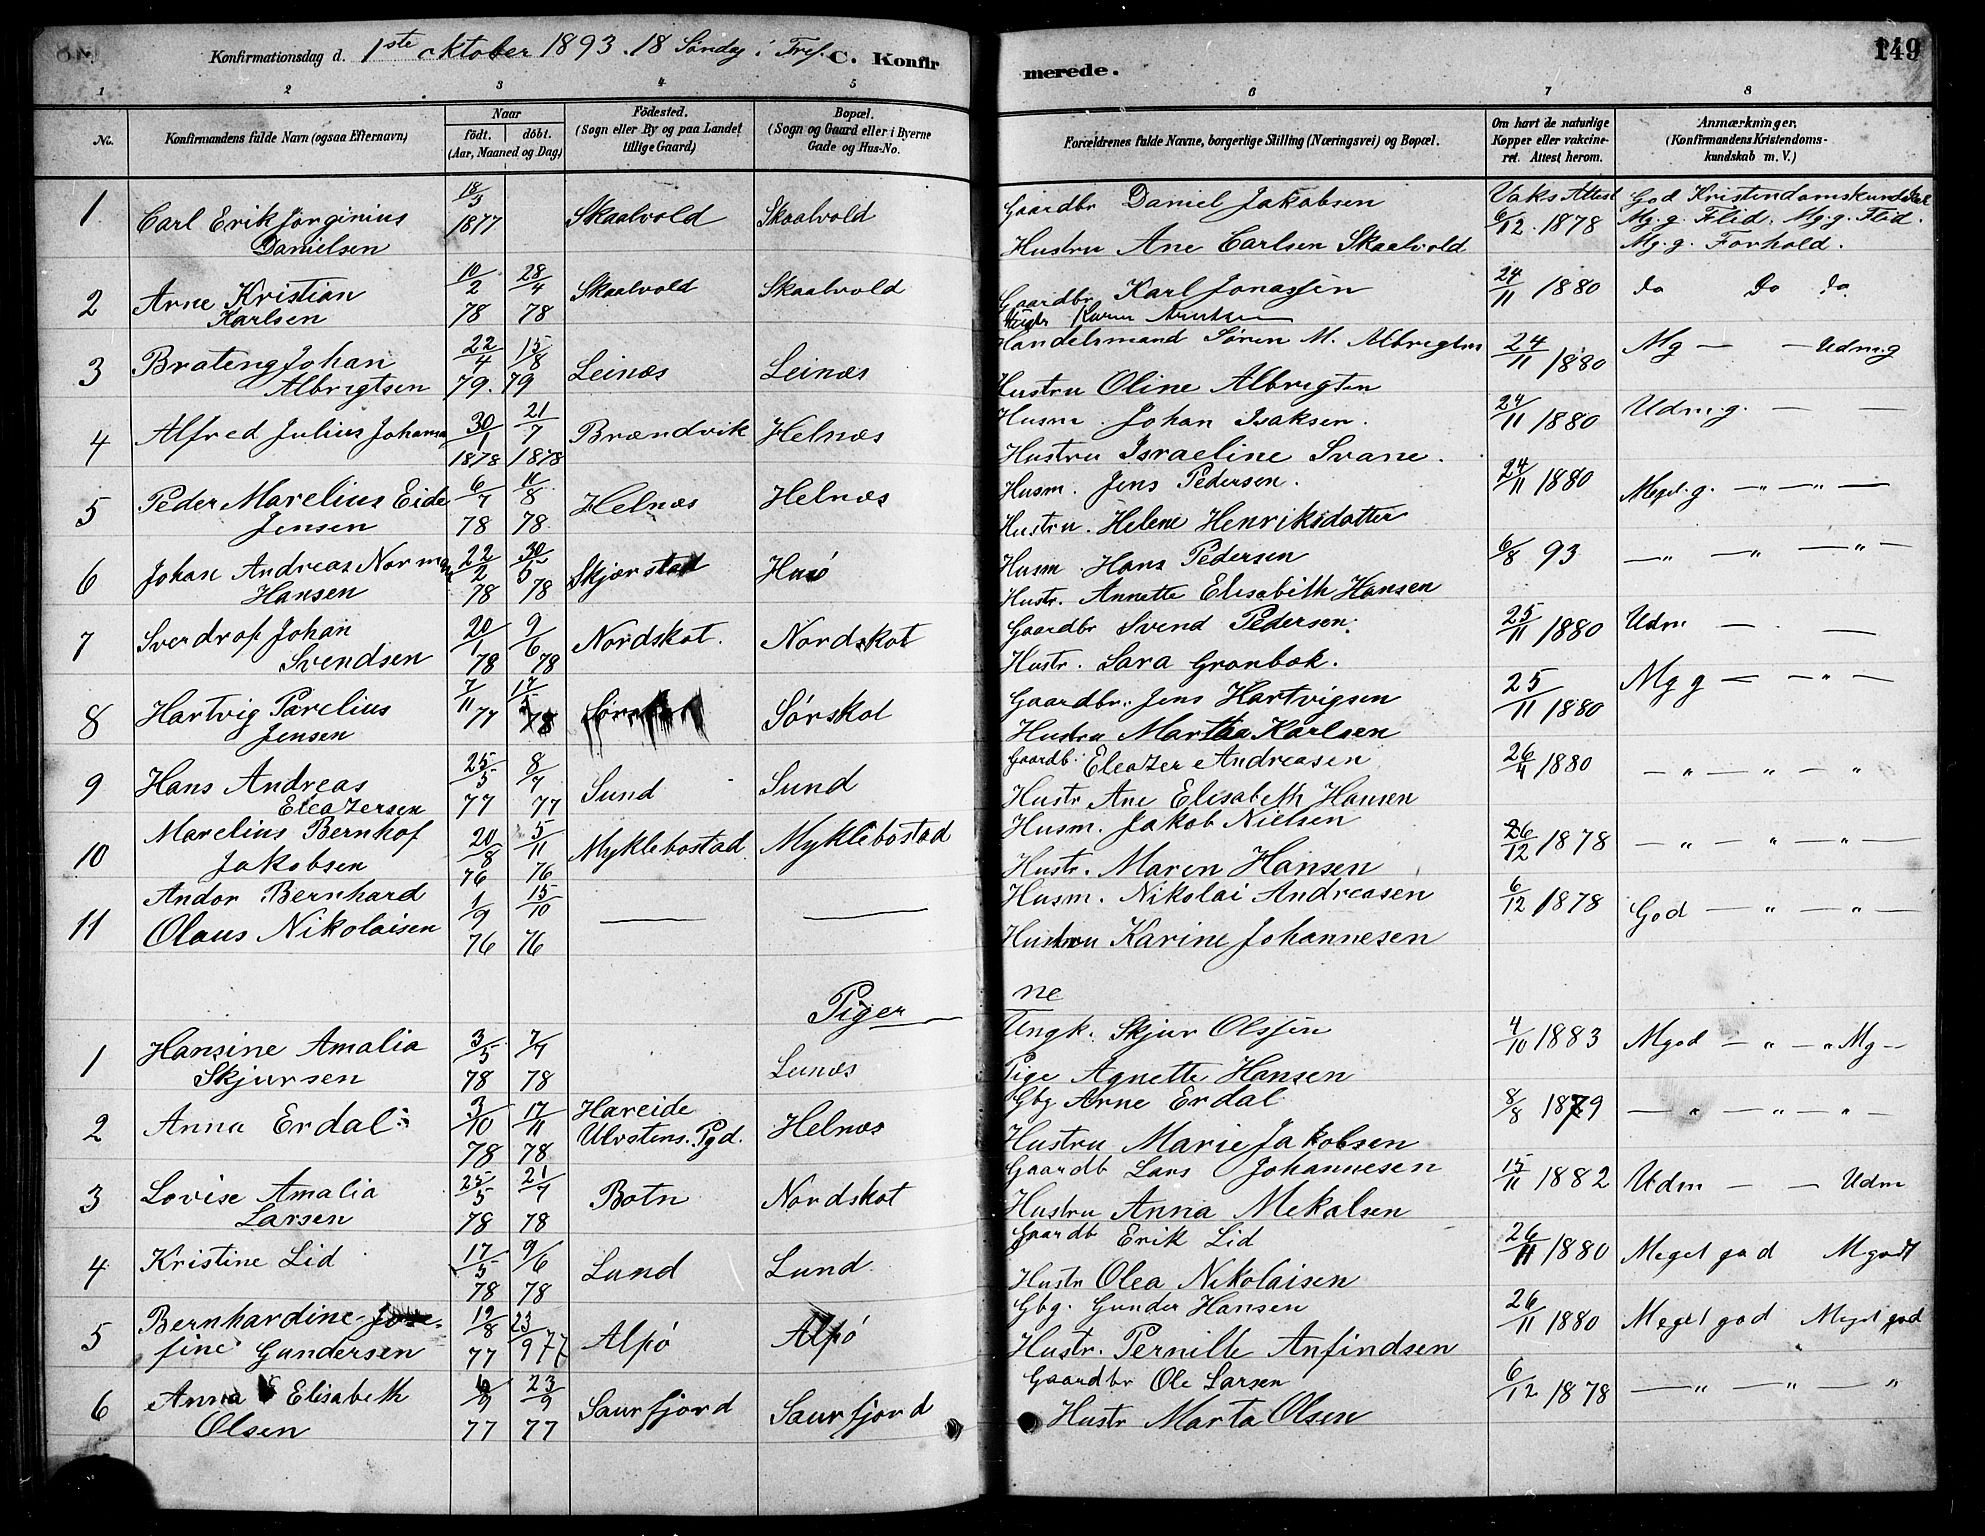 Konfirmationsdag d. 1ste oktober 1893. 18 Søndag i Tref. C. Konfirmerede. 149
1 2 3 4 5 6 7 8
No. Konfirmandens fulde Navn (ogsaa Efternavn) Naar födt. döbt. (Aar, Maaned og Dag) Födested. (Sogn eller By og paa Landet tillige Gaard) Bopæl. (Sogn og Gaard eller i Byerne Gade og Hus-No. Forældrenes fulde Navne, borgerlige Stilling (Næringsvei) og Bopæl. Om havt de naturlige Kopper eller vakcineret. Attest herom. Anmærkninger. (Konfirmandens Kristendomskundskab m. V.)
1 Carl Erik Jørginius Danielsen 18/3 1877 Skaalvold Skaalvold Gaardbr Daniel Jakobsen Vaks Attest God Kristendomskundskab
Hustru Ane Carlsen Skaalvold 6/12 1878 Mg.g. Flid. Mg.g. Flid.
Mg.g. Forhold.
2 Arne Kristian Karlsen 10/2 78 28/4 78 Skaalvold Skaalvold Gaardbr. Karl Jonassen 24/11 1880 do Do do
Hustr Karen
3 Brateng Johan Albrigtsen 22/4 79. 15/8 79 Leinæs Leinæs Handelsmand Søren M. Albrigtsen 24/11 1880 Mg — — Udm.g
Hustru Oline Albrigtsen
4 Alfred Julius Johansen 30/1 1878 21/7 1878 Brændvik Helnæs Husm. Johan Isaksen. 24/11 1880 Udm.g. — —
Hustru Israeline Svane.
5 Peder Marelius Eide Jensen 6/7 78 11/8 78. Helnæs Helnæs Husm. Jens Pedersen. 24/11 1880 Meget.g. — „ — „ —
Hustru. Helene Henriksdatter
6 Johan Andreas Norman Hansen 22/2 78 30/5 78 Skjærstad Husö Husm. Hans Pedersen 6/8 93 — „ — „ — „ —
Hustr. Annette Elisabith Hansen
7 Sverdrof Johan Svendsen 20/1 78 9/6 78 Nordskot. Nordskot Gaardbr Svend Pedersen. 25/11 1880 Udm — . —
Hustr. Sara Grønbok.
8 Hartvig Parelius Jensen 7/11 77 17/5 78 Sørskot Gaardbr. Jens Hartvigsen 25/11 1880 Mg g — — „ —
Hustru Martha Karlsen
9 Hans Andreas Eleazersen 25/5 77 8/7 77 Sund Sund Gaardb. Eleazer Andreasen 26/11 1880 — „ — „ — „
Hustr Ane Elisabeth Hansen
10 Marelius Bernhof Jakobsen 20/8 76 5/11 76 Myklebostad Myklebostad Husm. Jakob Nielsen 26/12 1878 — „ — „ — „ —
Hustr. Maren Hansen
11 Andor Bernhard Olaus Nikolaisen 1/9 76 15/10 76 — — Husm. Nikolai Andreasen 6/12 1878 God — „ — „ —
Hustru Karine Johannesen
Pigerne
1 Hansine Amalia Skjursen 3/5 78 7/7 78 Leinæs Ungk. Skjur Olssen 4/10 1883 Mgod — „ — „ Mg —
Pige Agnette Hansen
2 Anna Erdal 3/10 78 17/11 78 Hareide Ulvstens. Pgd. Helnæs Gbg Arne Erdal 8/8 1879 — „ — „ — „ —
Hustru Marie Jakobsen
3 Lovise Amalia Larsen 25/5 78 21/7 78 Botn Nordskot Gaardb Lars Johannesen 15/11 1882 Udm — — Udm
Hustru Anna Mekalsen
4 Kristine Lid 17/5 78 9/6 78 Lund Lund Gaardb Erik Lid 26/11 1880 Meget god M godt
Hustr Olea Nikolaisen
5 Bernhardine Josefine Gundersen 19/8 77 23/9 77 Alpö Alpö Gbg. Gunder Hansen 26/11 1880 Meget god Meget god
Hustr. Pernille Anfindsen
6 Anna Elisabeth Olsen 6/9 77 23/9 77 Saurfjord Saurfjord Gaardbr Ole Larsen 6/12 1878 — „ — „ — „
Hustr Marta Olsen